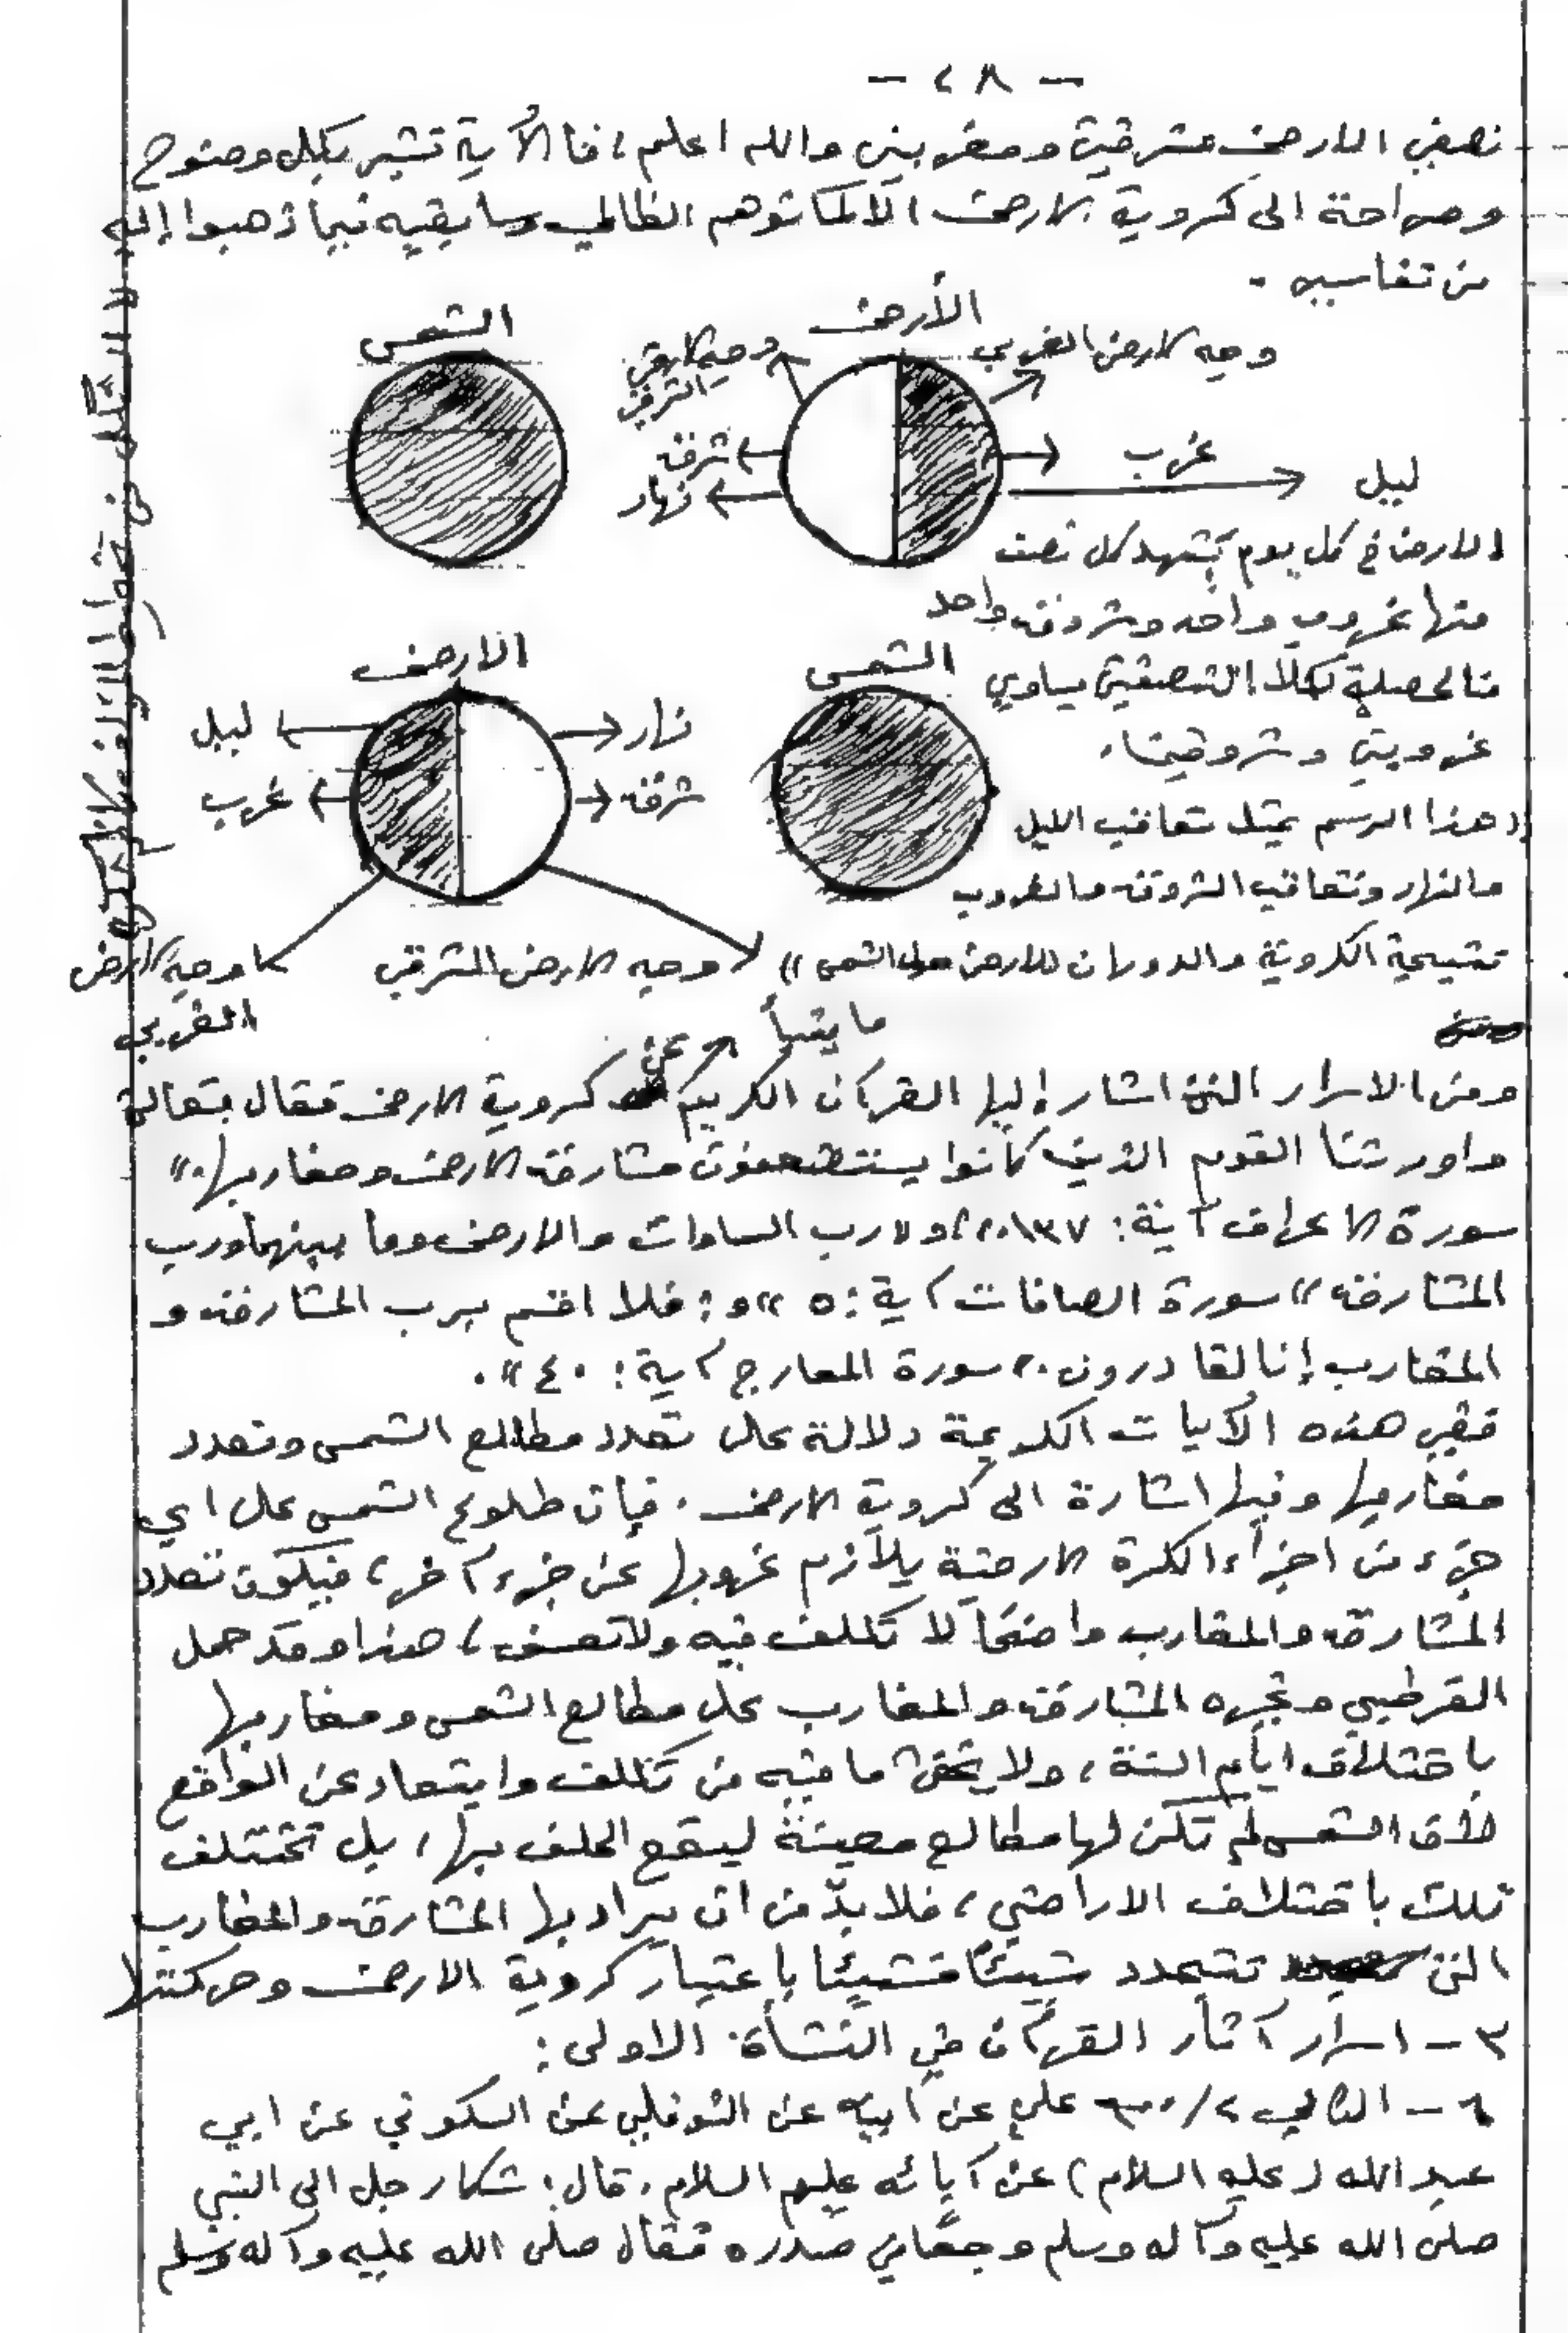 - ٤٨ -
نصفي الارض مشرقين ومغربين والله اعلم، فا الآية تشير بكل وضوح
وصراحة الى كروية الارض الا كما توهم الطالبي وسابقيه فيما ذهبوا إليه
من تفاسير.
الشمس
الأرض
وجه الارض الشرقي
وجه الارض الغربي
شرق
نهار
غرب
ليل
الارض في كل يوم يشهد كل نصف
منها غروب واحد وشروق واحد
فالحصيلة لكلا النصفين يساوي
غروبين وشروقين.
الارض
الشمس
ليل
غرب
نهار
شرق
(هذا الرسم يمثل تعاقب الليل
والنهار وتعاقب الشروق والغروب
نتيجة الكروية والدوران للارض حول الشمس))
وجه الارض المشرقي
وجه الارض
الغربي
الشكل من
ما ينبأ
عن
ومن الاسرار التي اشار إليها القرآن الكريم كروية الارض فقال تعالى
واورثنا القوم الذين كانوا يستضعفون مشارق الارض ومغاربها.))
سورة الاعراف آية: ١٣٧)) و(( رب السماوات والارض وما بينهما ورب
المشارق)) سورة الصافات آية: ٥ )) و: فلا اقسم برب المشارق و
المغارب إنا لقادرون)) سورة المعارج آية: ٤٠)).
ففي هذه الآيات الكريمة دلالة على تعدد مطالع الشمس وتعدد
مغاربها وفيها اشارة الى كروية الارض. فإن طلوع الشمس على اي
جزء من اجزاء الكرة الارضية يلازم غروبها عن جزء آخر، فيكون تعدد
المشارق والمغارب واضحاً لا تكلف فيه ولا تعسف، هذا وقد حمل
القرطبي وغيره المشارق والمغارب على مطالع الشمس ومغاربها
باختلاف ايام السنة، ولا يخفى ما فيه من تكلف وابتعاد عن الواقع
لأن الشمس لم تكن لها مطالع معينة ليقع الحلف بها، بل تختلف
تلك باختلاف الاراضي، فلا بدّ من ان يراد بها المشارق والمغارب
التي تتجدد شيئاً فشيئاً باعتبار كروية الارض وحركتها
٣ - اسرار آثار القرآن في النشأة الاولى:
٦ - الكافي ٢/٦٠٠ علي عن ابيه عن النوفلي عن السكوني عن ابي
عبد الله (عليه السلام) عن آبائه عليهم السلام. قال: شكا رجل الى النبي
صلى الله عليه وآله وسلم وجعاً في صدره فقال صلى الله عليه وآله وسلم